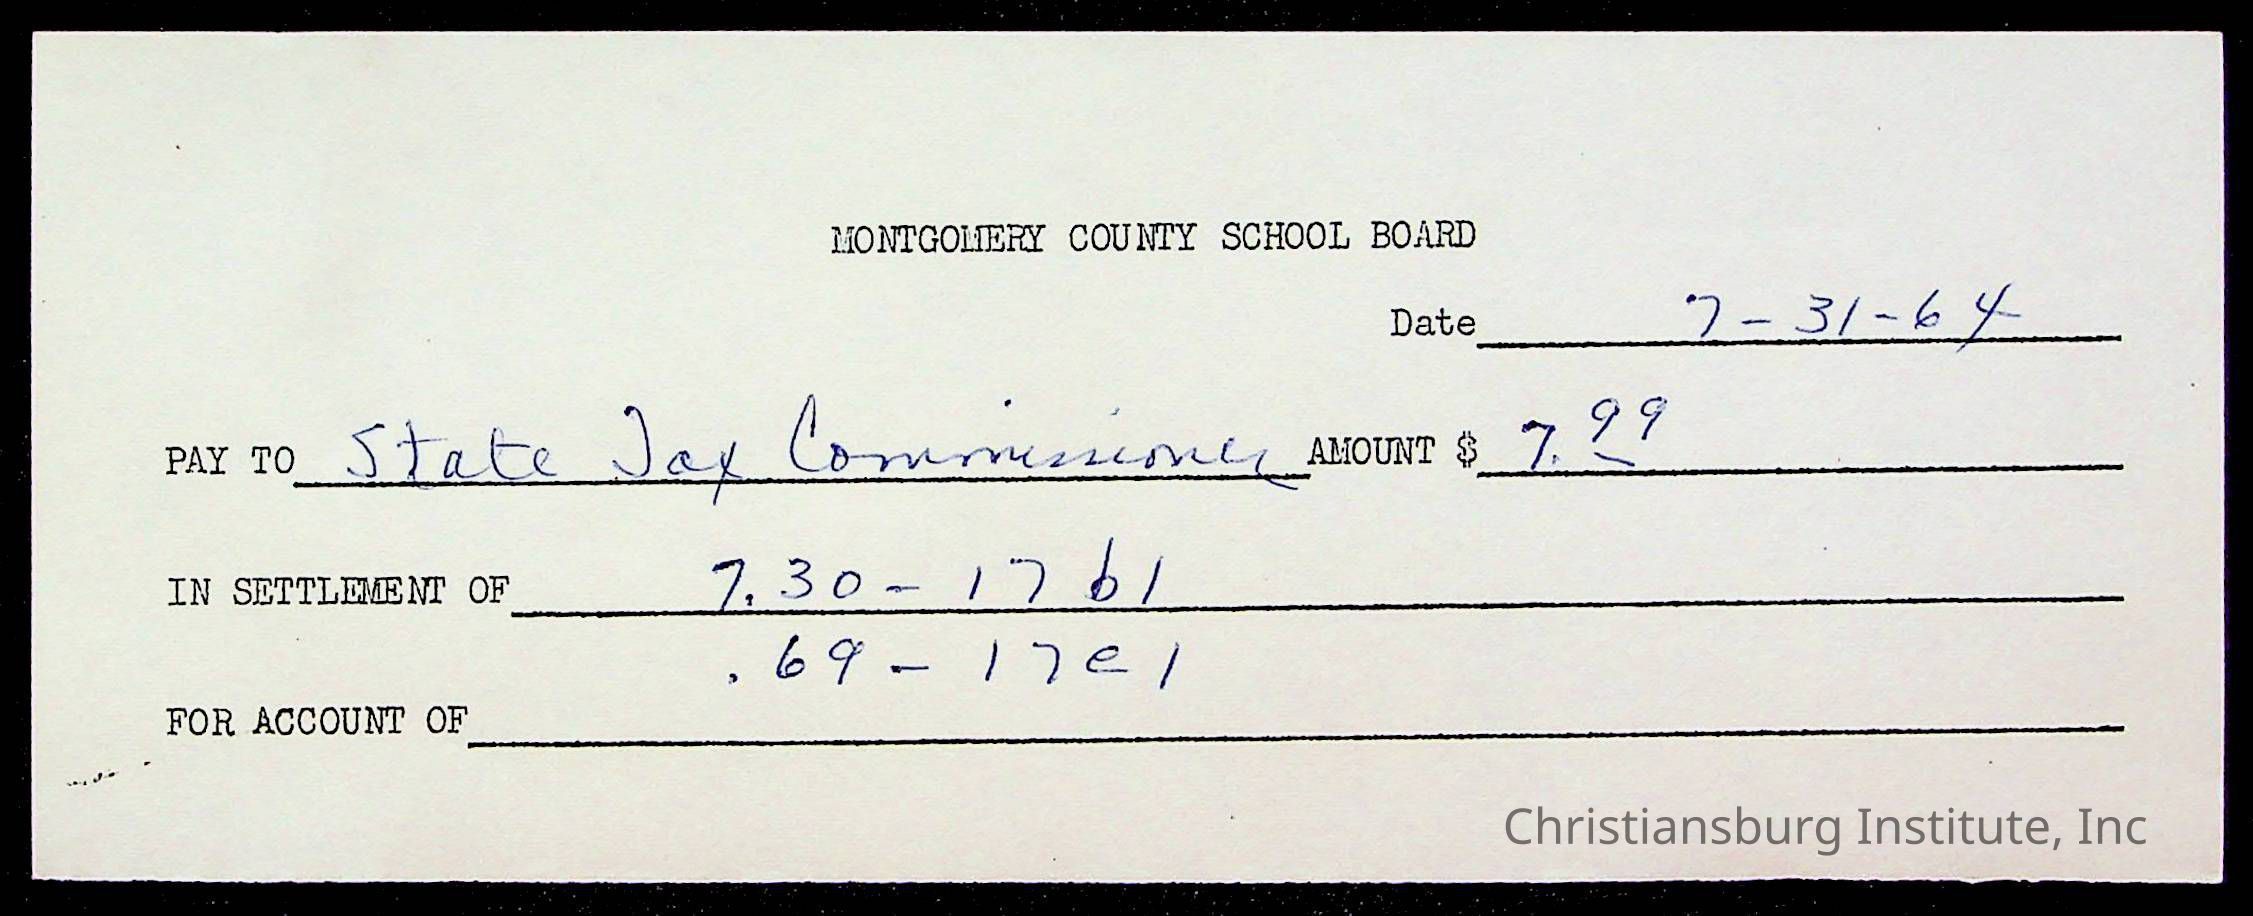 MONTGOMERY COUNTY SCHOOL BOARD
Date 7-31-64
PAY TO State Tax Commissioner AMOUNT $ 7.99
IN SETTLEMENT OF 7.30 - 17b1
.69 - 17e1
FOR ACCOUNT OF
Christiansburg Institute, Inc